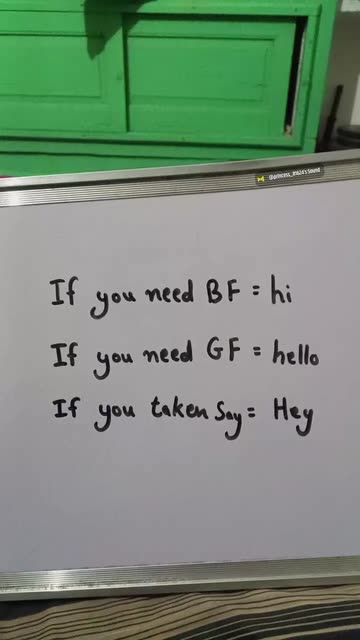 @princess_31624's Sound
If you need BF = hi
If you need GF = hello
If you taken Say = Hey